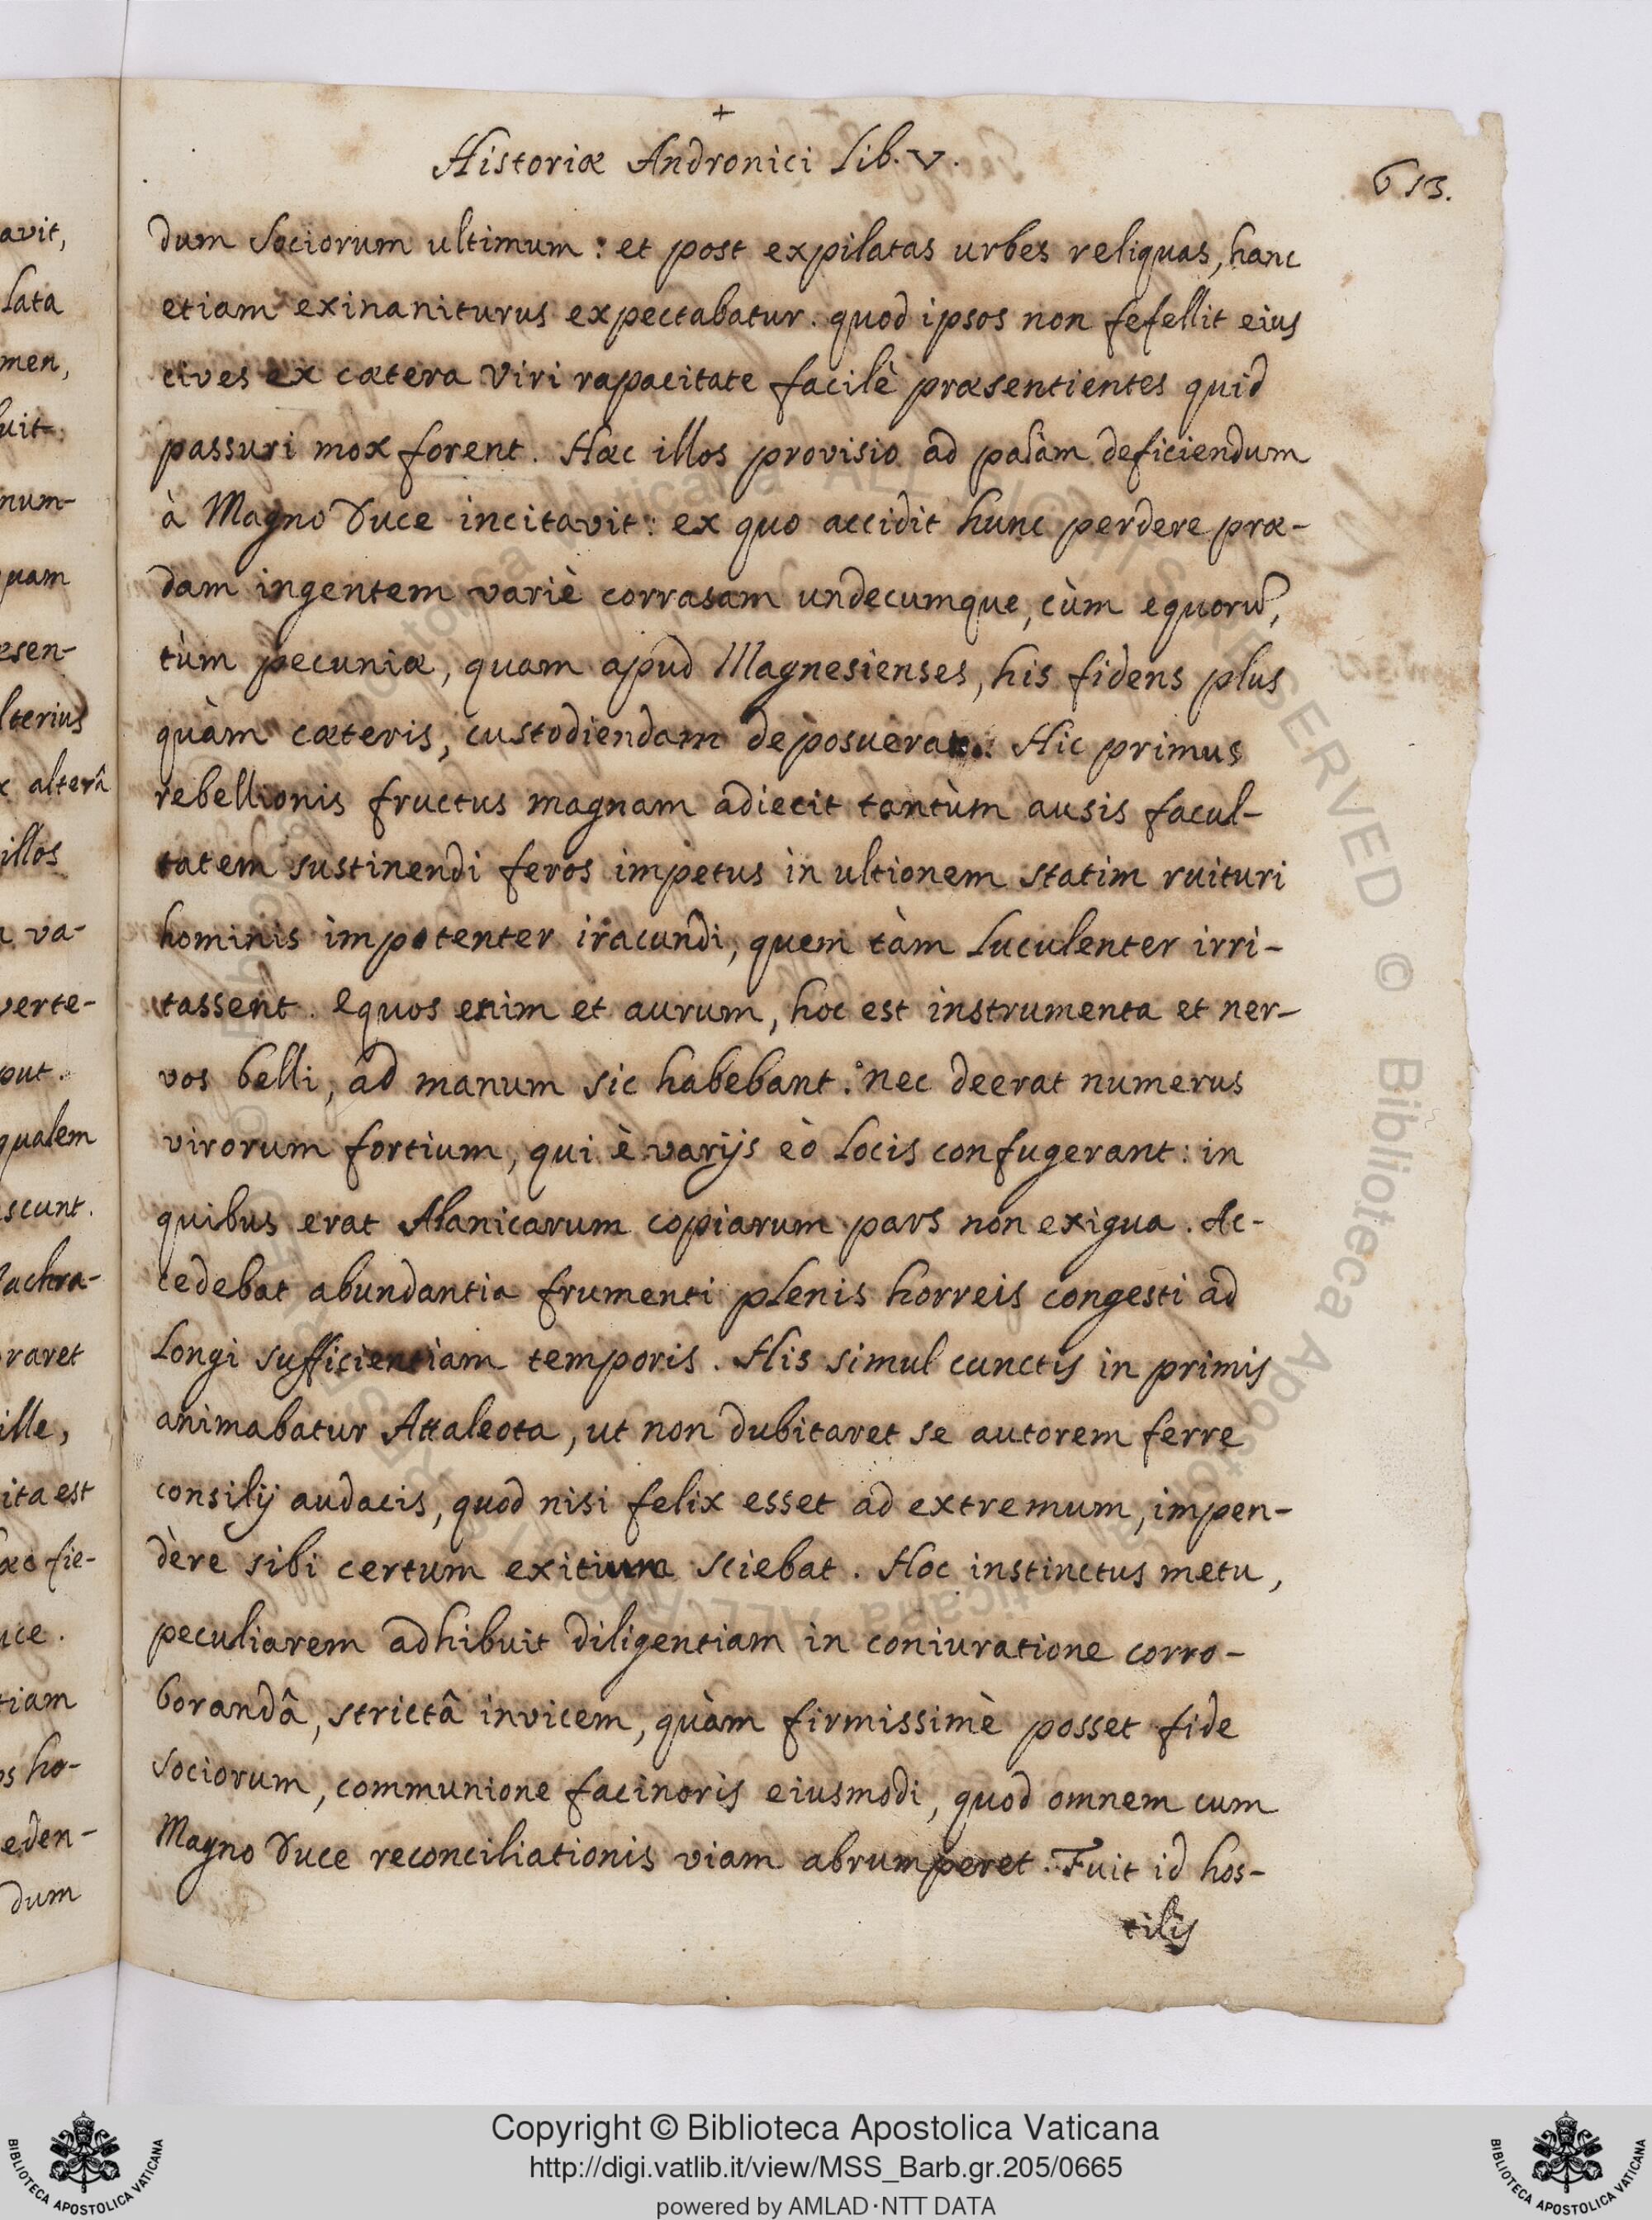 +
Historiæ Andronici Lib. V.
613.
dum sociorum ultimum: et post expilatas urbes reliquas, hanc
etiam exinaniturus expectabatur. quod ipsos non fefellit eius
cives ex cætera viri rapacitate facilè præsentientes quid
passuri mox forent. Hæc illos provisio ad palàm deficiendum
à Magno Duce incitavit: ex quo accidit hunc perdere præ-
dam ingentem variè corrasam undecumque, cùm equorũ,
tùm pecuniæ, quam apud Magnesienses, his fidens plus
quàm cæteris, custodiendam deposuerat. Hic primus
rebellionis fructus magnam adiecit tantùm ausis facul-
tatem sustinendi feros impetus in ultionem statim ruituri
hominis impotenter iracundi, quem tàm luculenter irri-
tassent. Equos enim et aurum, hoc est instrumenta et ner-
vos belli, ad manum sic habebant. nec deerat numerus
virorum fortium, qui è varijs eò locis confugerant: in
quibus erat Alanicarum copiarum pars non exigua. Ac-
cedebat abundantia frumenti plenis horreis congesti ad
longi sufficientiam temporis. His simul cunctis in primis
animabatur Attaleota, ut non dubitaret se autorem ferre
consilij audacis, quod nisi felix esset ad extremum, impen-
dère sibi certum exitium sciebat. Hoc instinctus metu,
peculiarem adhibuit diligentiam in coniuratione corro-
borandâ, strictâ invicem, quàm firmissimè posset fide
sociorum, communione facinoris eiusmodi, quod omnem cum
Magno Duce reconciliationis viam abrumperet. Fuit id hos-
tilis
avit,
lata
men,
uit.
num-
quam
esen-
lterius
alterâ
illos
va-
verte-
put.
qualem
scunt.
achra-
raret
ille,
ita est
fie-
uce.
tiam
os ho-
eden-
dum
Copyright © Biblioteca Apostolica Vaticana
http://digi.vatlib.it/view/MSS_Barb.gr.205/0665
powered by AMLAD·NTT DATA
BIBLIOTECA APOSTOLICA VATICANA
BIBLIOTECA APOSTOLICA VATICANA